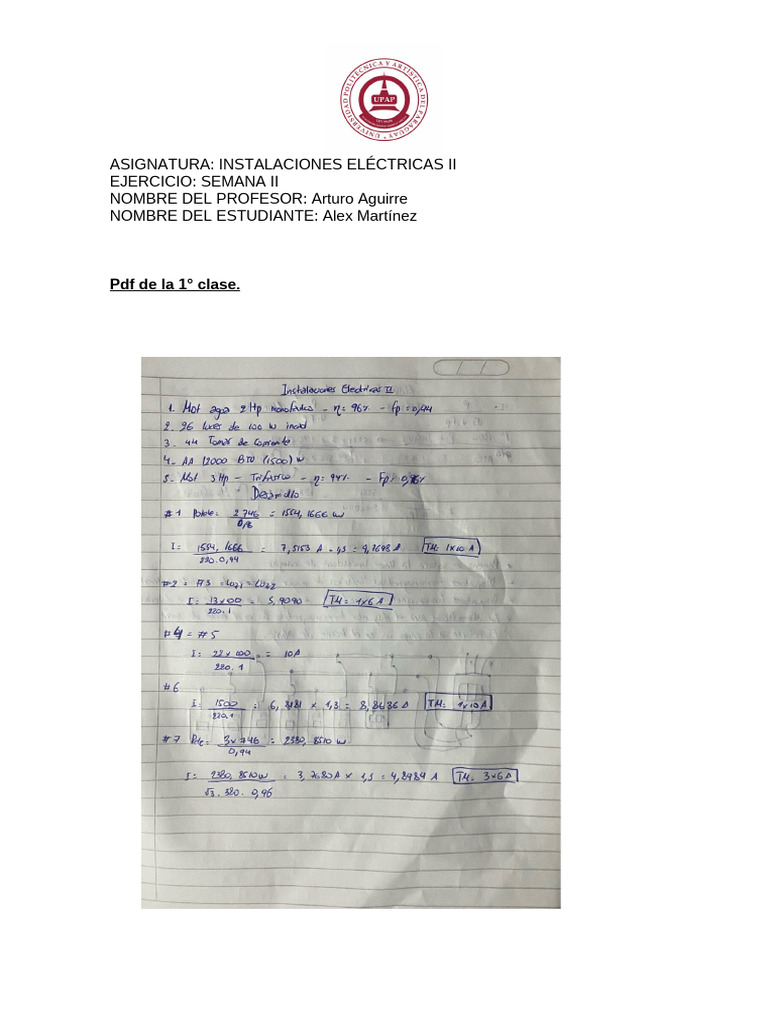 UNIVERSIDAD POLITÉCNICA Y ARTÍSTICA DEL PARAGUAY
UPAP
ASIGNATURA: INSTALACIONES ELÉCTRICAS II
EJERCICIO: SEMANA II
NOMBRE DEL PROFESOR: Arturo Aguirre
NOMBRE DEL ESTUDIANTE: Alex Martínez
Pdf de la 1° clase.
Instalaciones Electricas II
1. Mot agua 2 Hp monofasico - η= 96% - Fp=0,94
2. 26 luces de 100 w incad
3. 44 Tomas de corriente
4.- AA 12000 BTU (1500) w
5.- Mot 3Hp - Trifasico - η= 94% - Fp: 0,96
Desarrollo
#1 Potete: 2.746 = 1554,1666 w
I= 1554,1666 = 7,5153 A . 1,3 = 9,7698 A TM: 1x10 A
220.0,94
#2 = #3 = Luz1 = Luz2
I= 13x100 = 5,9090 TM: 1x6 A
220.1
#4 = #5
I= 22x100 = 10A
220.1
#6
I= 1500 = 6,8181 x 1,3 = 8,8636 A TM: 1x10 A
220.1
#7 Pote: 3x746 = 2380,8510 w
0,94
I= 2380,8510w = 3,7680A x 1,3 = 4,8984 A TM: 3x6 A
√3. 380. 0,96